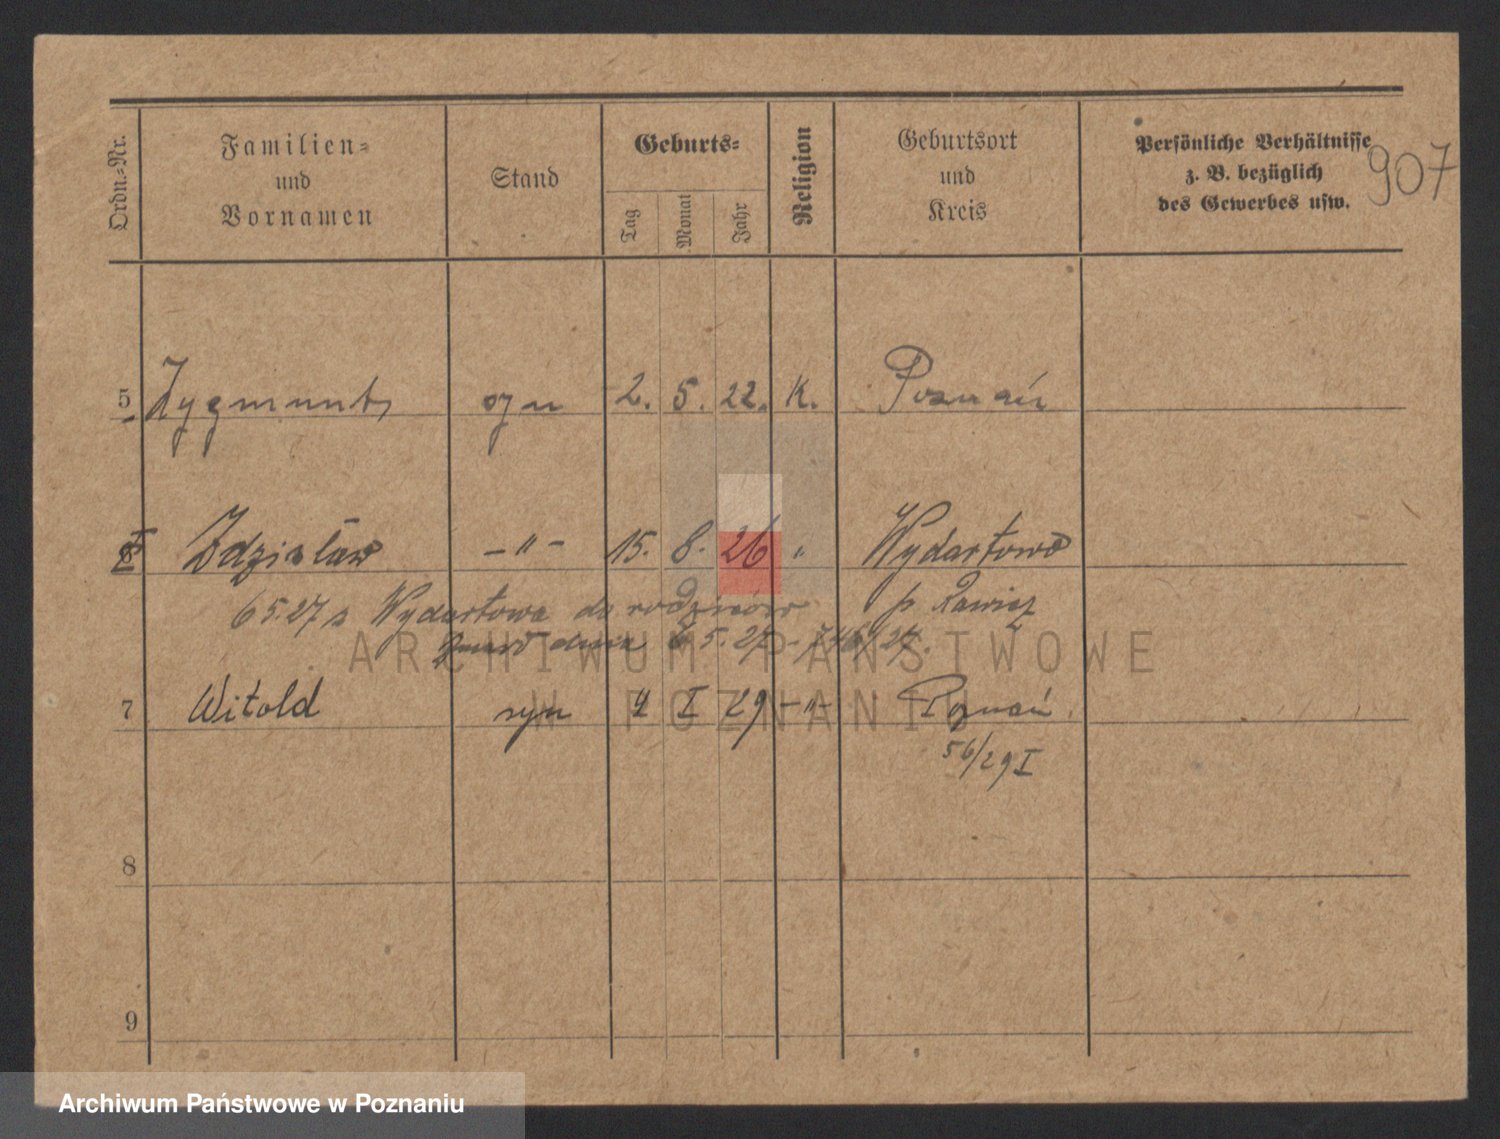 Ordn.-Nr.
Familien-
und
Vornamen
Stand
Geburts-
Tag
Monat
Jahr
Religion
Geburtsort
und
Kreis
Persönliche Verhältnisse
z. B. bezüglich
des Gewerbes usw.
907
5 Zygmunt syn 2. 5. 22. K. Poznań
6 Zdzisław – " – 15. 8. 26 " Wydartowo
6 5.27 z Wydartowa do rodziców p. Rawicz
dnia 6 5. 27 - 746/27.
7 Witold syn 4 I 29 - " - Poznań
56/29 I
8
9
ARCHIWUM PAŃSTWOWE
W POZNANIU
Archiwum Państwowe w Poznaniu